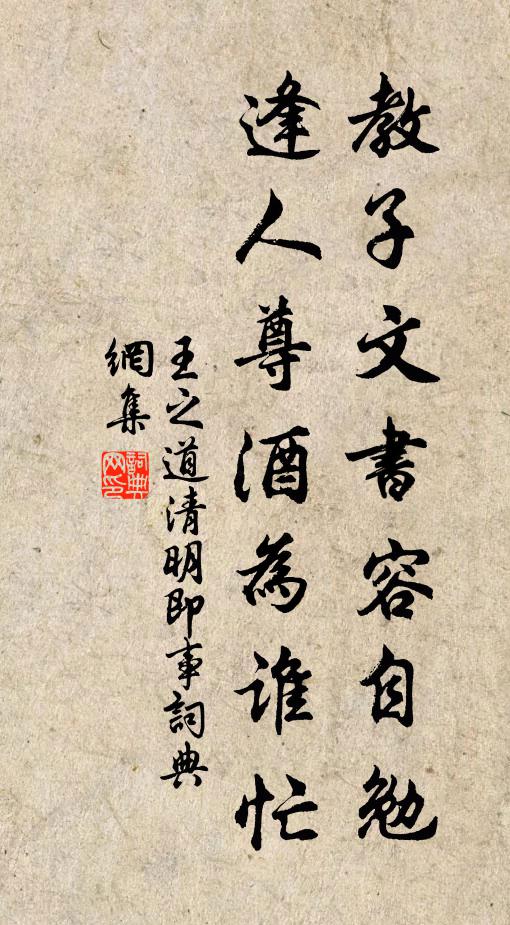 教子文書容自勉
逢人尊酒為誰忙
王之道清明即事詞典
網集
詞典網印